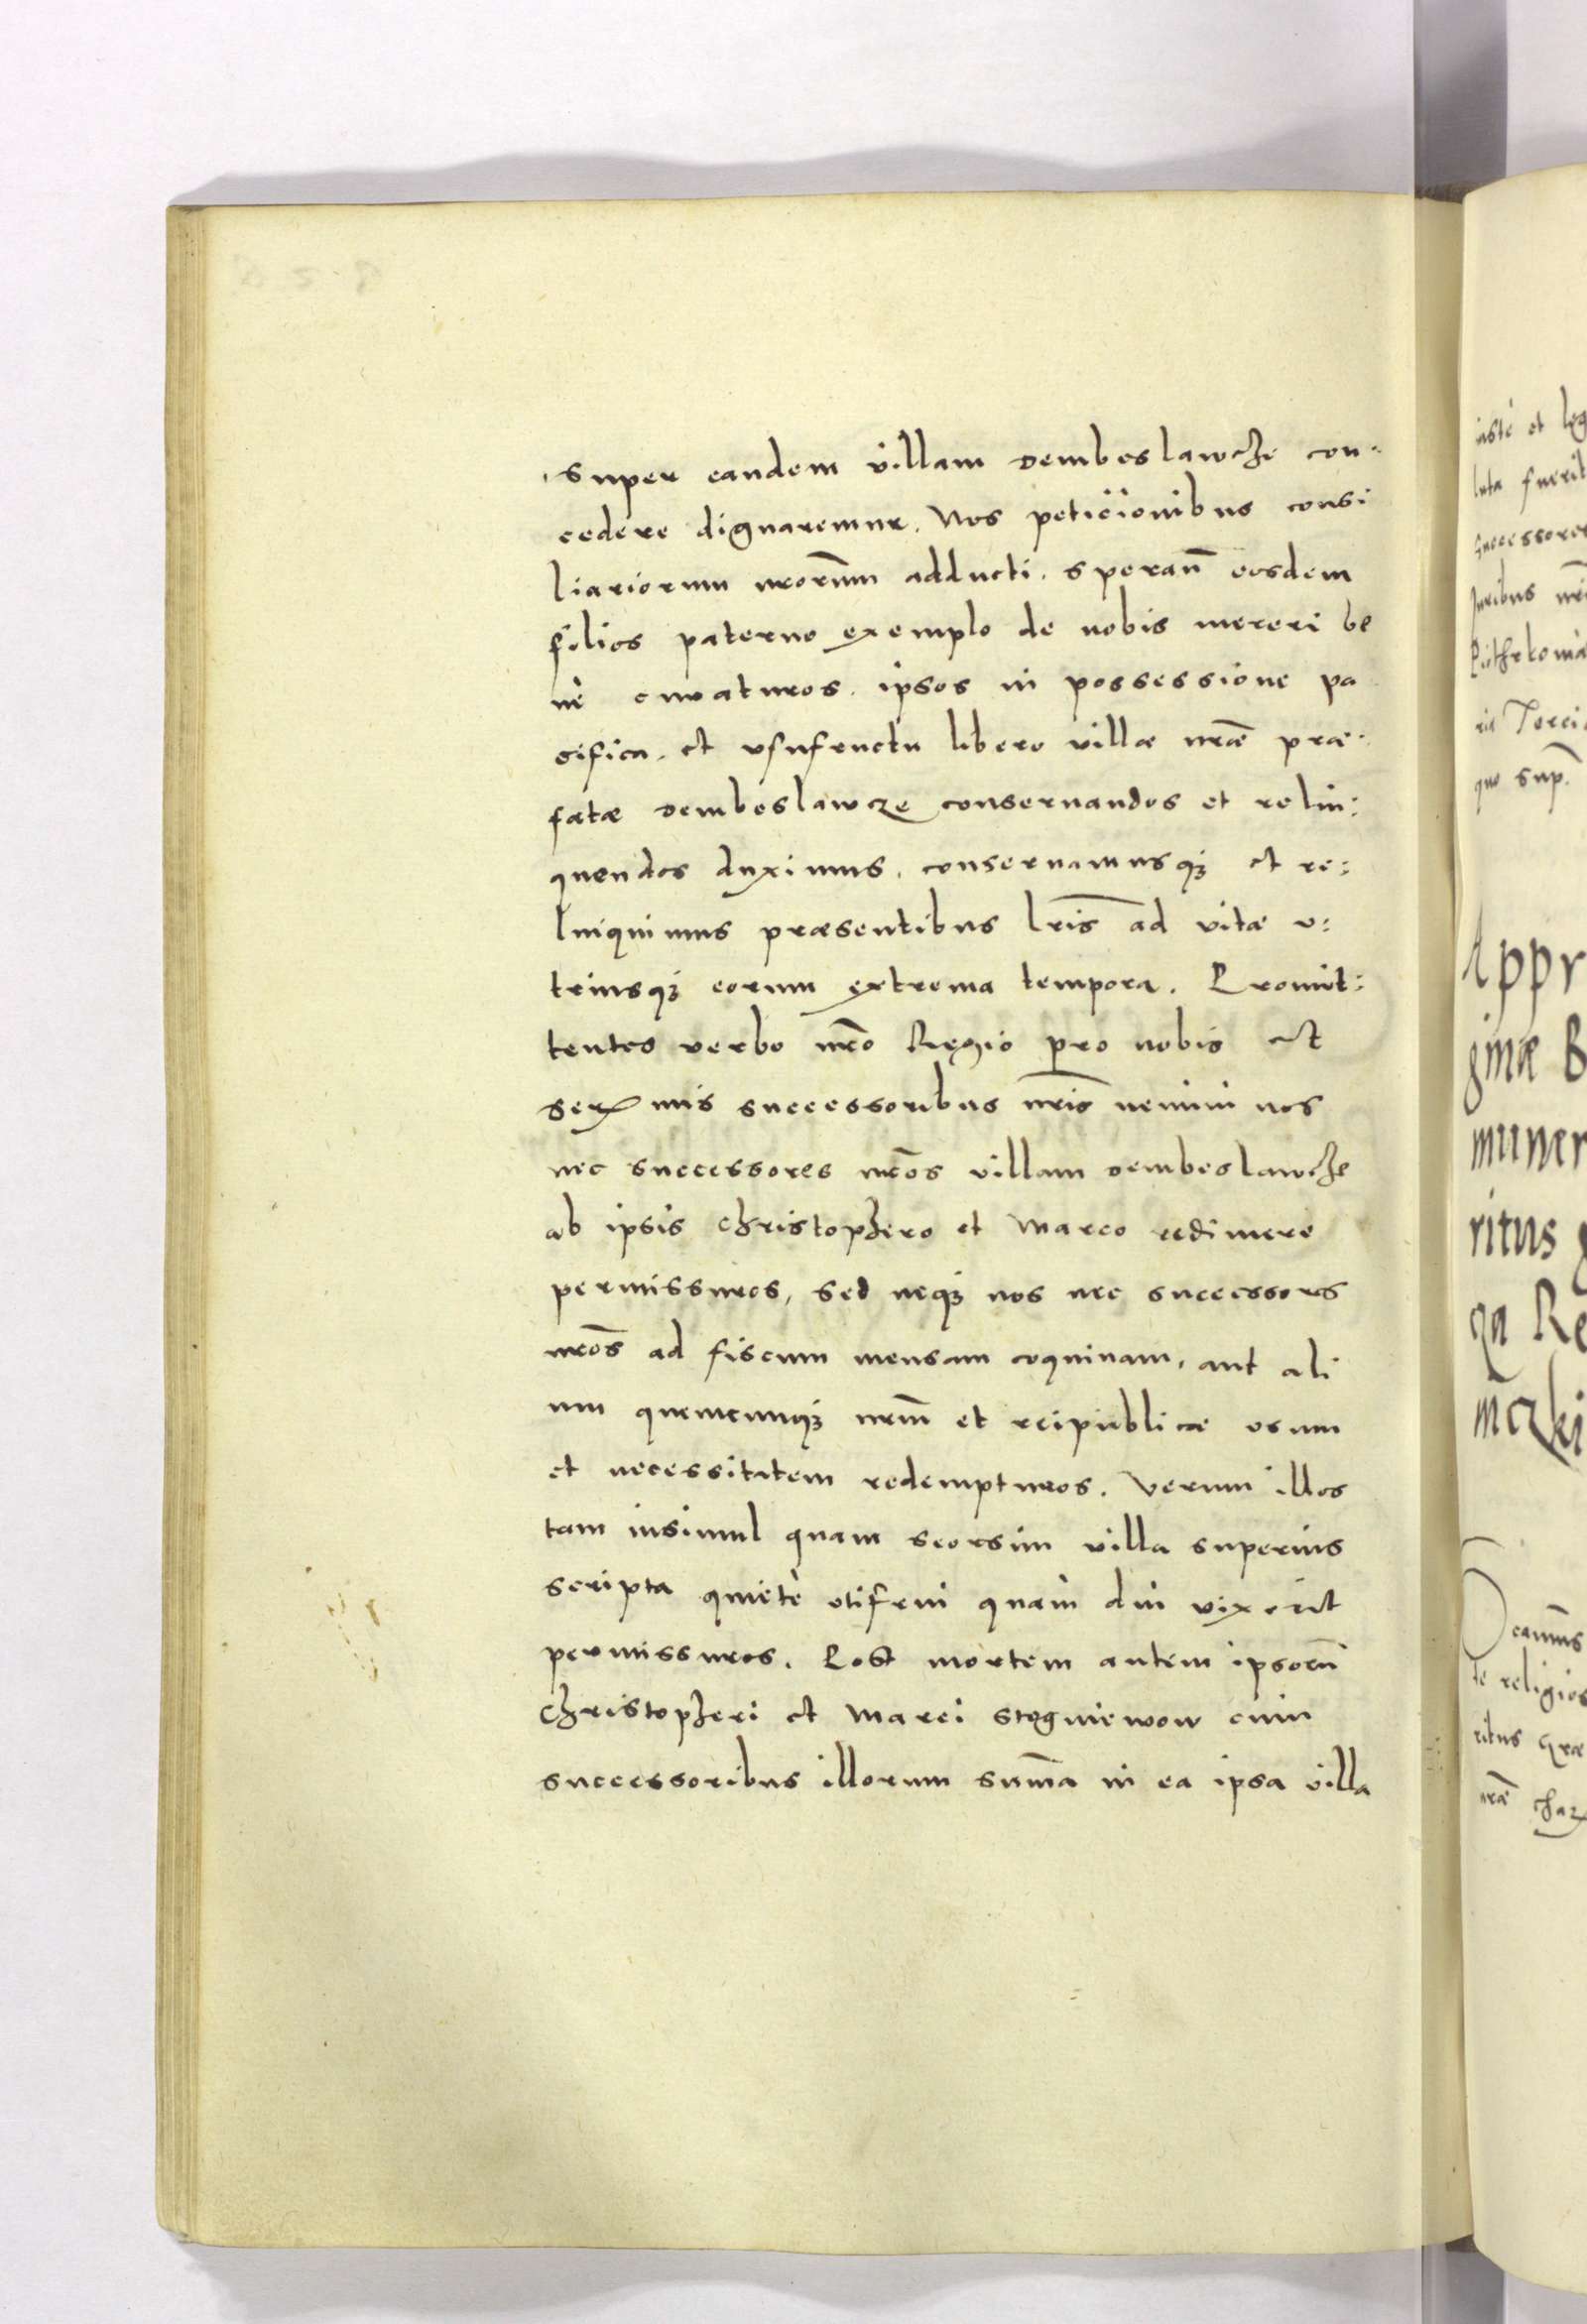 super eandem villam Demboslawche con-
cedere dignaremur. Nos peticionibus consi
liariorum nrorum adducti. sperañ eosdem
filios paterno exemplo de nobis mereri be
ne curaturos. ipsos in possessione pa
cifica. et vsufructu libero villæ nræ præ-
fatæ Demboslawcze conseruandos et relin:
quendos duximus. conseruamusq; et re:
linquimus præsentibus lris ad vitæ v:
triusq; eorum extrema tempora. Promit:
tentes verbo nro Regio pro nobis et
ser mis successoribus nris nemini nos
nec successores nros villam Demboslawche
ab ipsis Christophero et Marco redimere
permissuros, sed neq; nos nec successors
nros ad fiscum mensam coquinam, aut ali
um quemcunq; nrm et reipublicæ vsum
et necessitatem redempturos. Verum illos
tam insimul quam seorsim villa superius
scripta quietè vtifrui quam diu vixerit
permissuros. Post mortem autem ipsorū
Christopheri et Marci Stogniewow cum
successoribus illorum sum̄a in ea ipsa villa
iustè et leg
lata fuerit
successores
Iuribus nri
Piothrkowiæ
ris Tercia
quo sup.
Appr
ginæ B
muner
ritus g
ga Re
mczki
Decanus
te religios
ritus Græ
nræ char